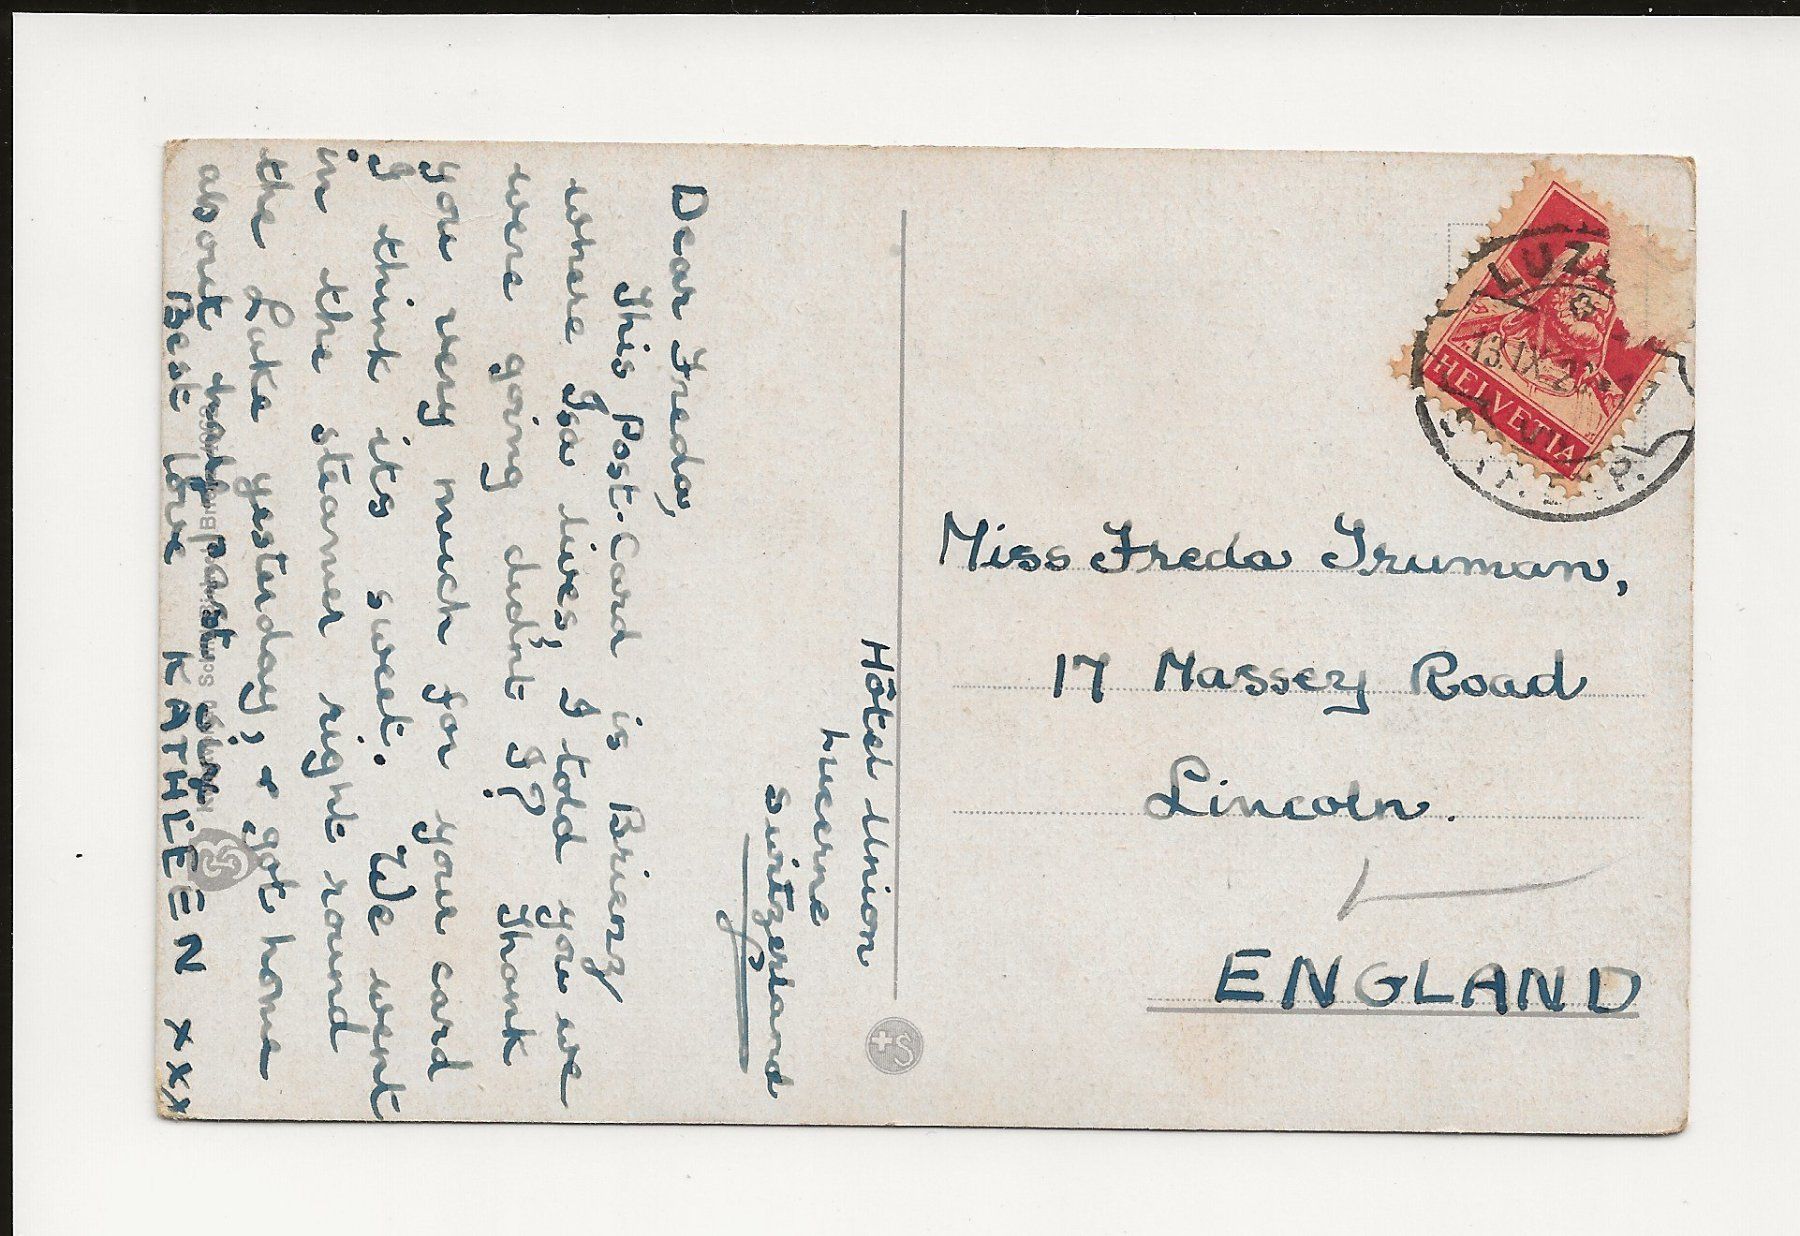 Hôtel Union
Lucerne
Switzerland
Dear Freda,
This Post-Card is Brienz
where Isa lives, I told you we
were going didn't I? Thank
you very much for your card
I think its sweet. We went
in the steamer right round
the Lake yesterday, & got home
about half past six.
Best love KATHLEEN xxx
Miss Freda Truman,
17 Massey Road
Lincoln.
ENGLAND
HELVETIA
LUZ
13.IX.2
+S